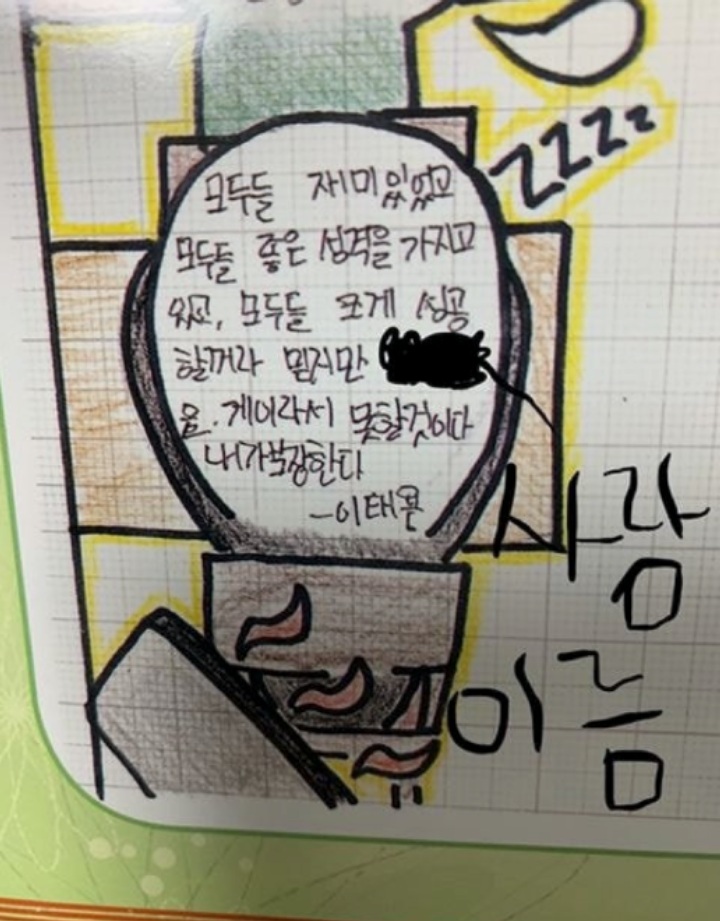 zzzz
모두들 재미있었고
모두들 좋은 성격을 가지고
있고, 모두들 쪼게 성공
할꺼라 믿지만
은. 게이라서 못할것이다
내가 보장한다
-이태
사람
이름